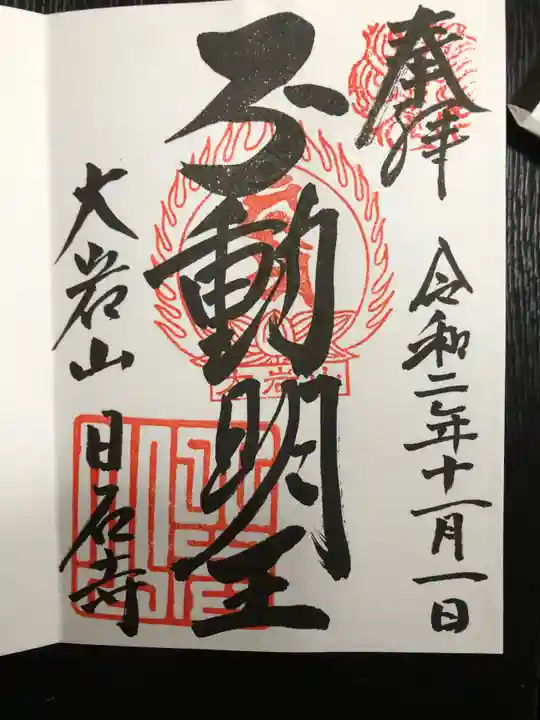 奉拝
令和二年十一月一日
不動明王
大岩山
大岩山
日石寺